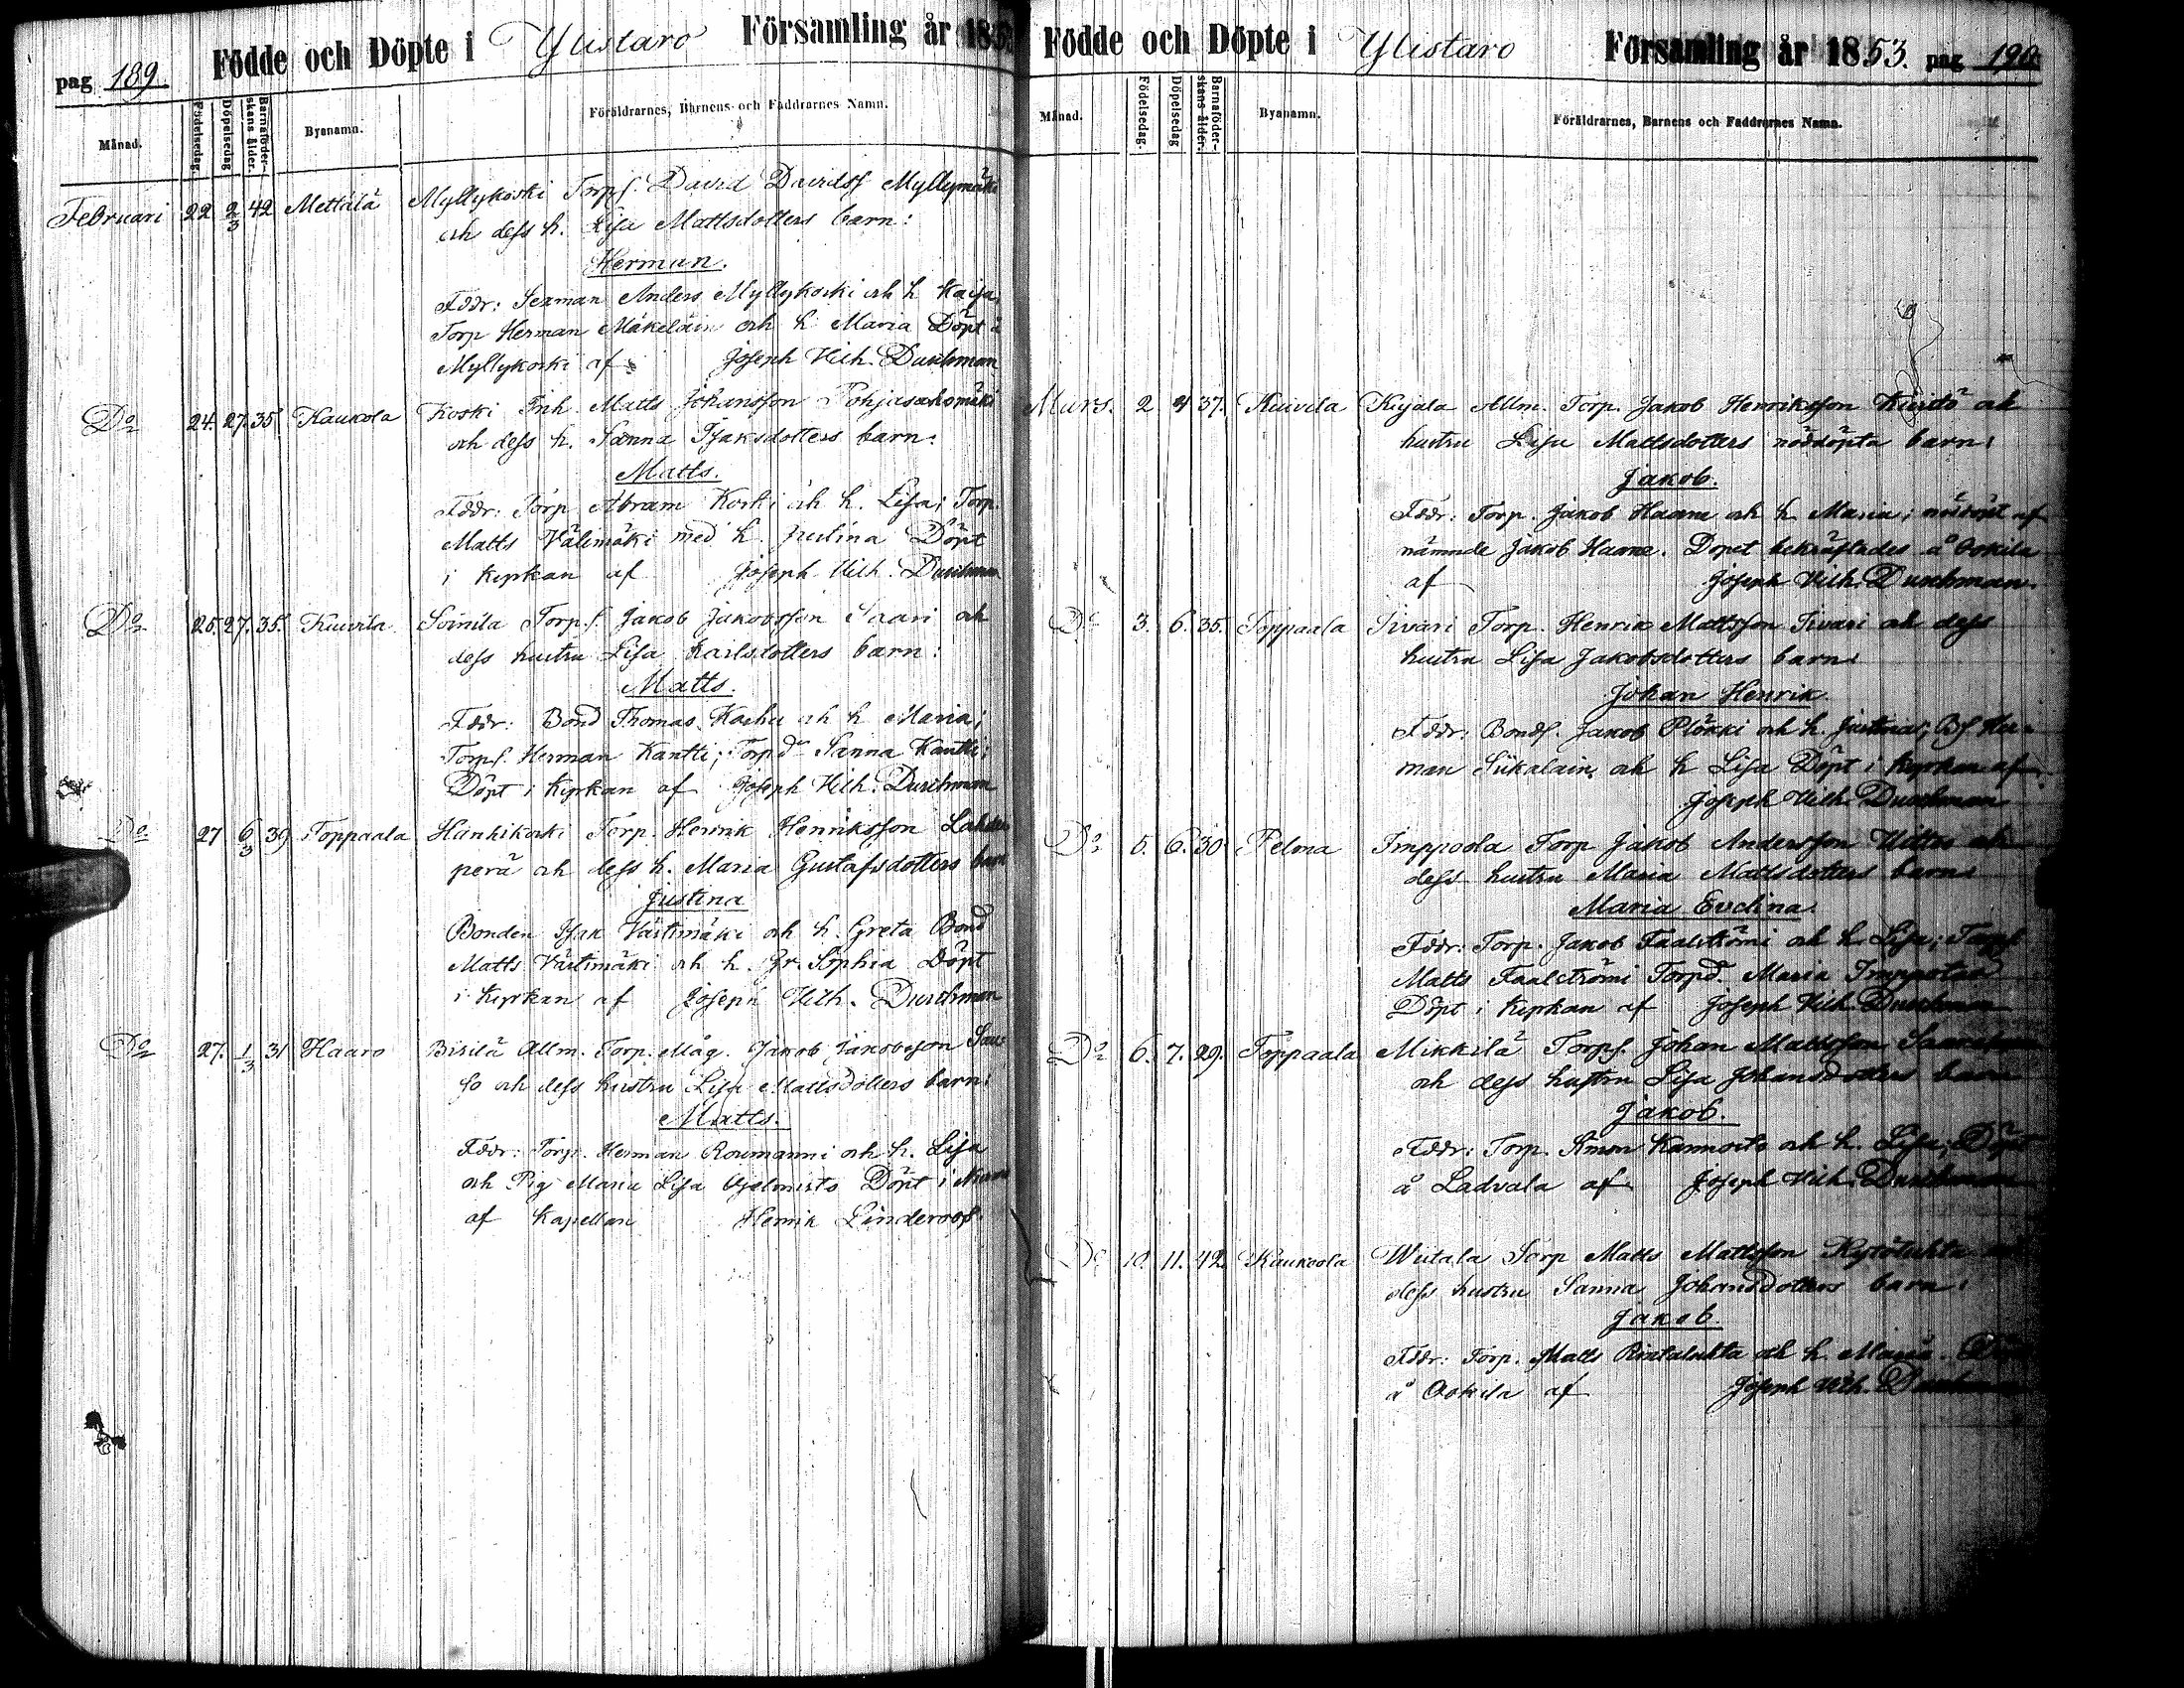 pag 189. Födde och Döpte i Ylistaro Församling år 1853
Månad. Födelsedag. Döpelsedag Barnaföderskans ålder. Byanamn. Föräldrarnes, Barnens och Faddrarnes Namn.
Februari 22 2/3 42 Mettälä Myllykoski Torps. David Davidss Myllymäki
och dess h. Lisa Mattsdotters barn:
Herman.
Fddr: Sexman Anders Myllykoski och h Kaisa,
Torp Herman Mäkeläin och h Maria Döpt å
Myllykoski af Joseph Vilh. Durchman
Do 24. 27. 35 Kaukola Koski Inh. Matts Johansson Pohjasahomäki
och dess h. Sanna Isaksdotters barn:
Matts.
Fddr: Torp Abram Koski och h. Lisa; Torp.
Matts Välimäki med h. Justina Döpt
i Kyrkan af Joseph Vilh. Durchman
Do 25. 27. 35. Kuivila Soinila Torps. Jakob Jakobsson Saari och
dess hustru Lisa Karlsdotters barn:
Matts.
Fddr: Bond Thomas Kashu och h Maria;
Torps. Herman Kantti; Torpd Sanna Kantti;
Döpt i Kyrkan af Joseph Vilh. Durchman
Do 27 6/3 39 Toppaala Hanhikoski Torp. Henrik Henriksson Lahden
perä och dess h. Maria Gustafsdotters barn
Justina
Bonden Isak Västimäki och h. Greta Bond
Matts Västimäki och h. Gr. Sophia Döpt
i Kyrkan af Joseph Vilh. Durchman
Do 27. 1/3 31 Haaro Bisilä Allm. Torp. Måg. Jakob Jakobsson Sau
so och dess hustru Lisa Mattsdotters barn:
Matts.
Fddr: Torp. Herman Roumanni och h. Lisa
och Pig Maria Lisa Döpt i
af Kapellan Henrik Linderoos.
Födde och Döpte i Ylistaro Församling år 1853. pag 190.
Månad. Födelsedag. Döpelsedag Barnaföderskans ålder. Byanamn. Föräldrarnes, Barnens och Faddrarnes Namn.
Mars. 2 4 37. Kuivila Kujala Allm. Torp. Jakob Henriksson och
hustru Lisa Mattsdotters nöddöpta barn:
Jakob.
Fddr: Torp. Jakob Haana och h Maria; nöddöpt af
nämnde Jakob Haana. Dopet bekräftades å Ookila
af Joseph Vilh. Durchman.
Do 3. 6. 35. Toppaala Tivari Torp. Henrik Mattsson Tivari och dess
hustru Lisa Jakobsdotters barn:
Johan Henrik.
Fddr: Bonds. Jakob Plökki och h. Justina; Bs. Her-
man Siikalain och h Lisa Döpt i Kyrkan af
Joseph Vilh. Durchman
Do 5. 6. 30 Pelma Imppoola Torp Jakob Andersson och
dess hustru Maria Mattsdotters barn:
Maria Evelina.
Fddr: Torp. Jakob Faalströmi och h. Lisa; Torps
Matts Faalströmi Torpd. Maria Imppolas
Döpt i Kyrkan af Joseph Vilh. Durchman
Do 6. 7. 29. Toppaala Mikkilä Torps. Johan Mattsson
och dess hustru Lisa Johansdotters barn
Jakob.
Fddr: Torp. Simon och h. Lisa; Döpt
å Ladvala af Joseph Vilh. Durchman
Do 10. 11. 42. Kaukoola Wiitala Torp Matts Mattsson Kytöluhta och
dess hustru Sanna Johansdotters barn:
Jakob.
Fddr: Torp. Matts Rintaluhta och h. Maria. Döpt
å Ookila af Joseph Vilh. Durchman